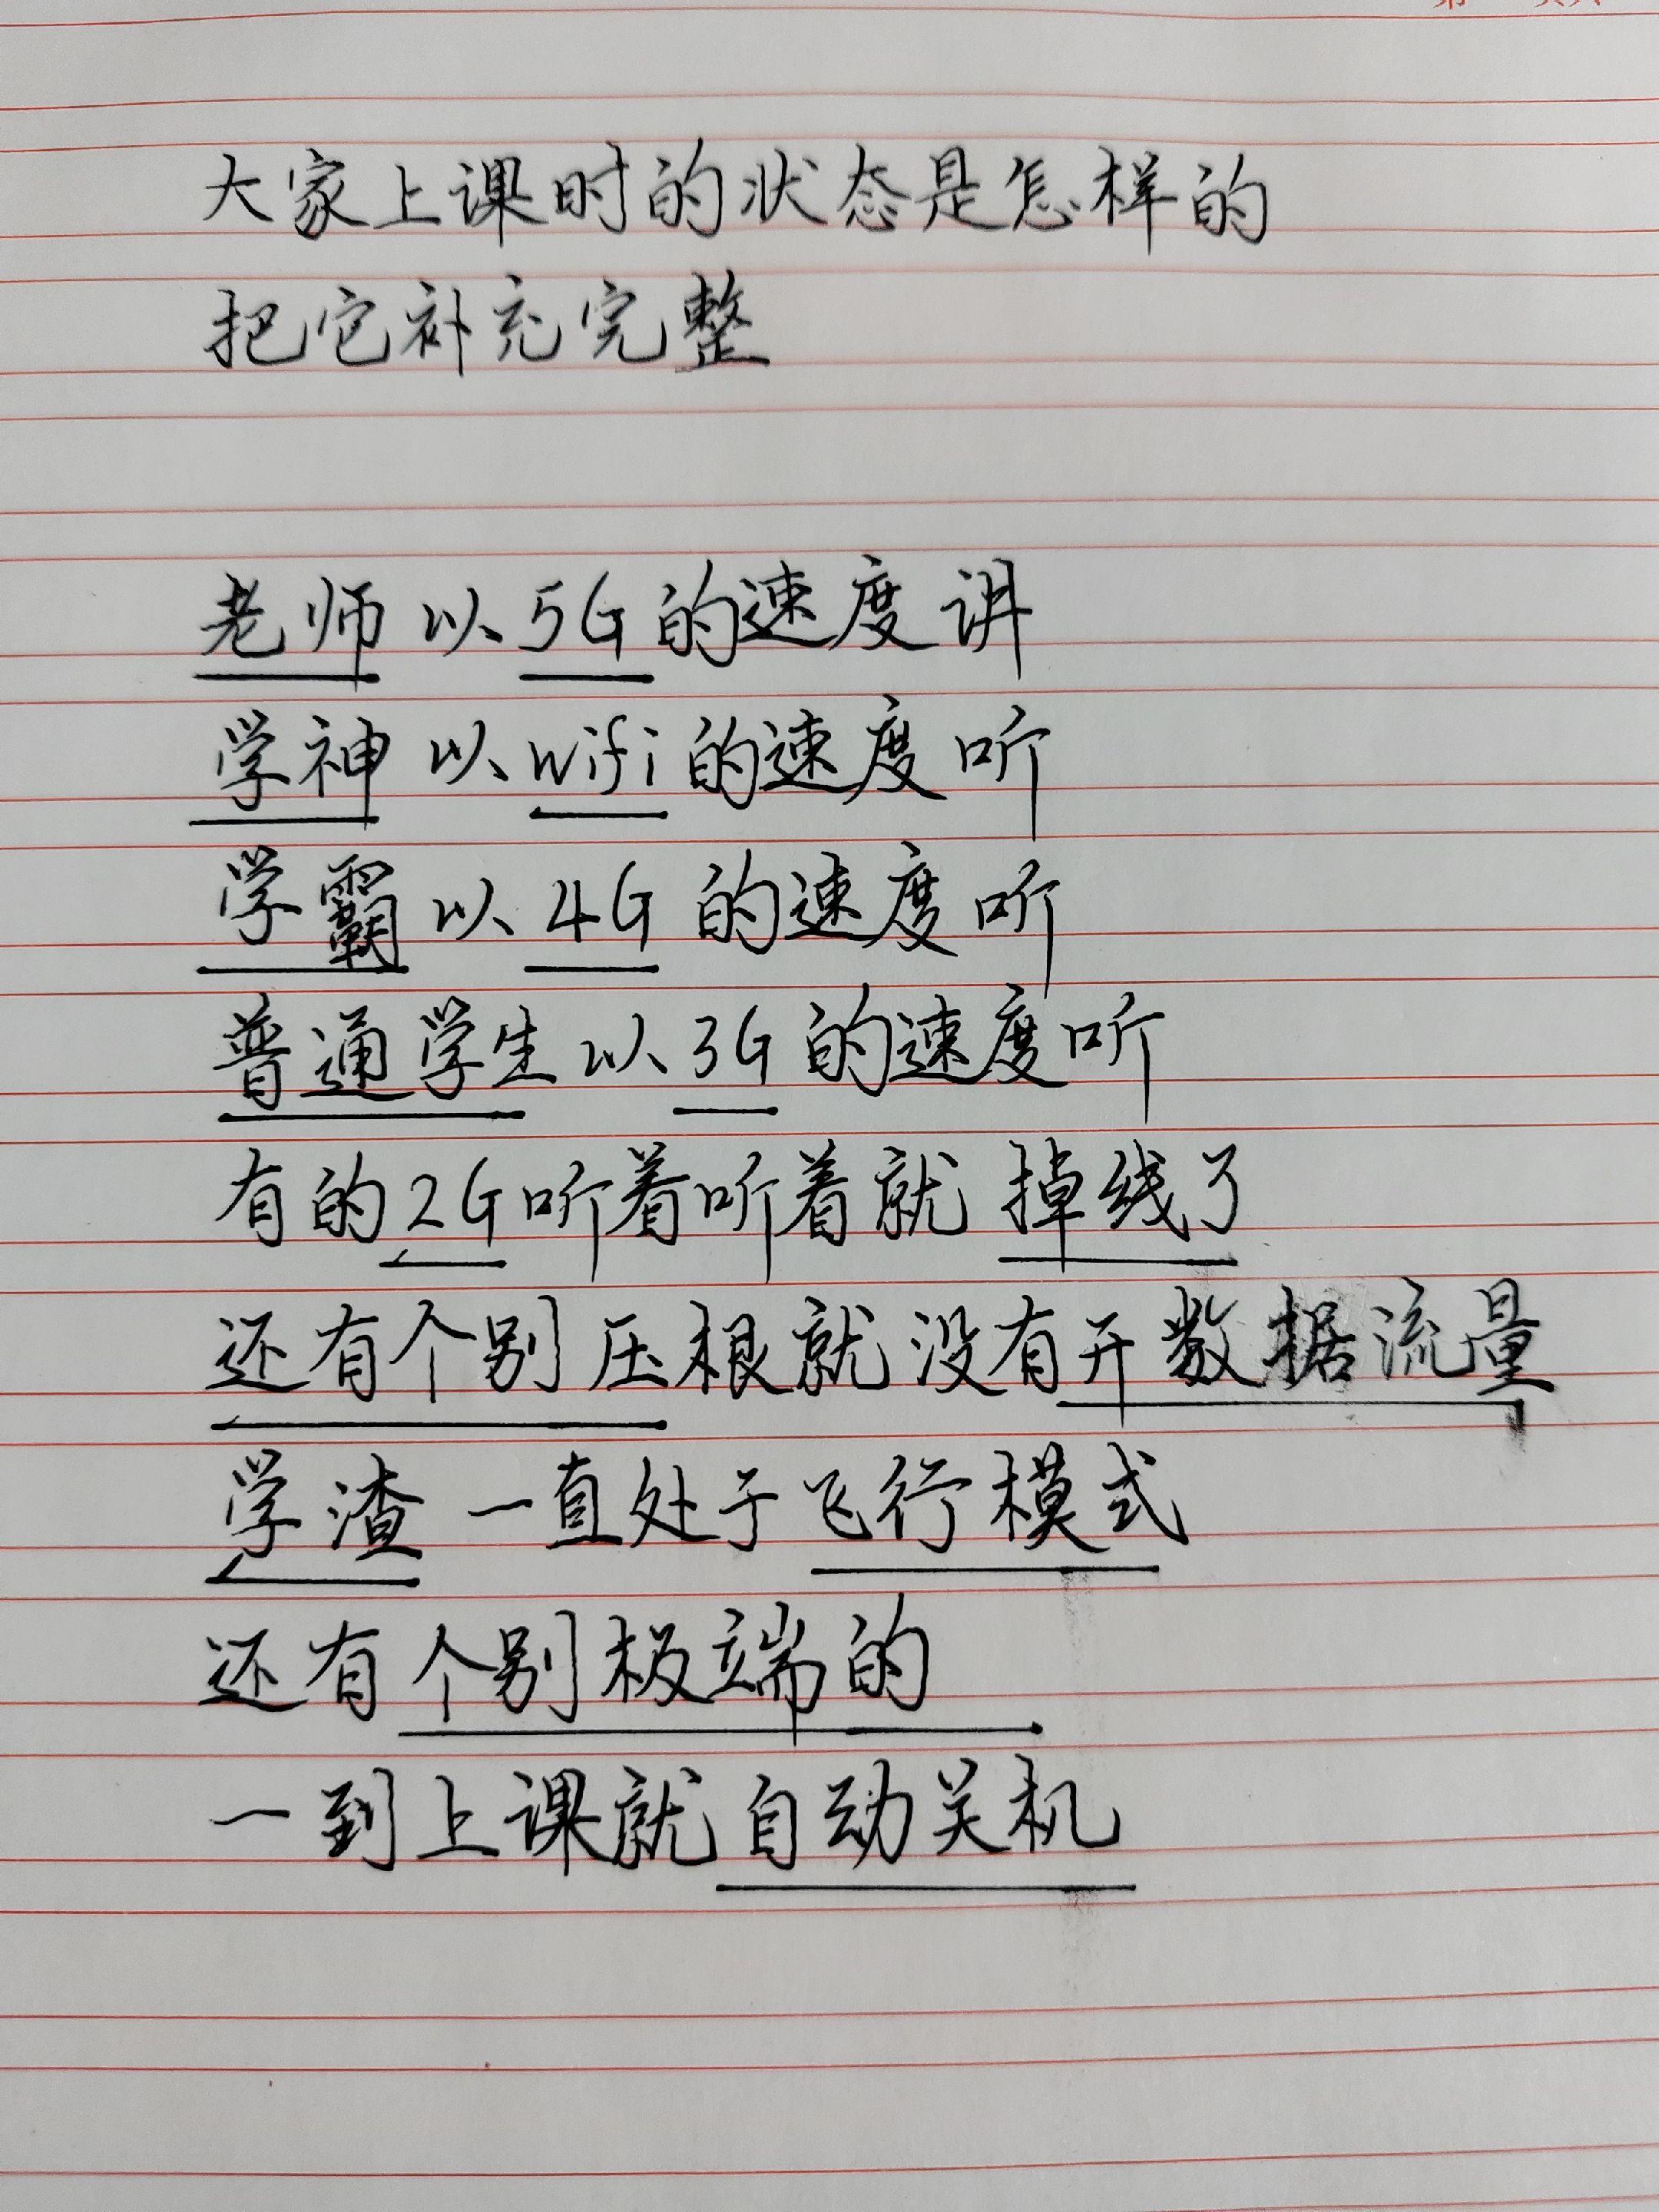 大家上课时的状态是怎样的
把它补充完整
老师以5G的速度讲
学神以wifi的速度听
学霸以4G的速度听
普通学生以3G的速度听
有的2G听着听着就掉线了
还有个别压根就没有开数据流量
学渣一直处于飞行模式
还有个别极端的
一到上课就自动关机